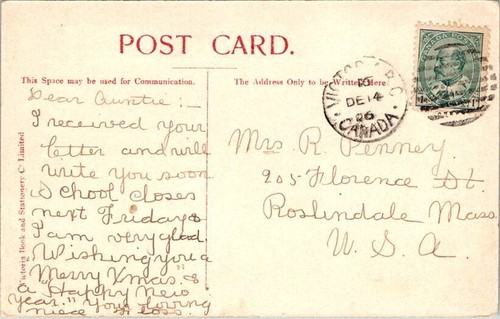 POST CARD.
This Space may be used for Communication.
The Address Only to be Written Here
Victoria Book and Stationery Co Limited
Dear Auntie :-
I received your
letter and will
write you soon
School closes
next Friday &
I am very glad.
Wishing you a
Merry Xmas. &
a Happy New
Year." Your loving
niece
Mrs R. Penney
905 Florence St.
Roslindale Mass.
U. S. A.
VICTORIA B.C.
DE 14
06
CANADA
CANADA POSTAGE